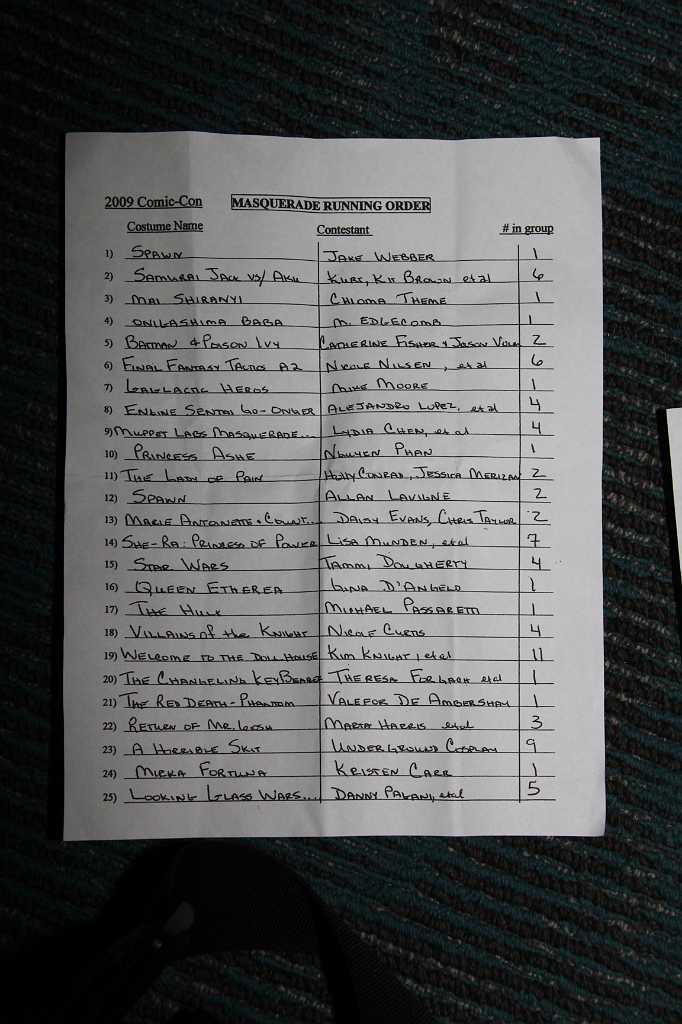 2009 Comic-Con MASQUERADE RUNNING ORDER
Costume Name Contestant # in group
1) SPAWN JAKE WEBBER 1
2) SAMURAI JACK VS/ AKU KURT, KIT BROWN et al 6
3) MAI SHIRANYI CHIOMA THEME 1
4) ONIGASHIMA BABA M. EDGECOMB 1
5) BATMAN & POISON IVY CATHERINE FISHER & JASON VOLK 2
6) FINAL FANTASY TACTICS A2 NICOLE NILSEN, et al 6
7) GALLACTIC HEROS MIKE MOORE 1
8) ENGINE SENTAI GO-ONGER ALEJANDRO LOPEZ, et al 4
9) MUPPET LABS MASQUERADE... LYDIA CHEN, et al 4
10) PRINCESS ASHE NGUYEN PHAN 1
11) THE LADY OF PAIN HOLLY CONRAD, JESSICA MERIZAN 2
12) SPAWN ALLAN LAVIGNE 2
13) MARIE ANTOINETTE & COUNT... DAISY EVANS, CHRIS TAYLOR 2
14) SHE-RA: PRINCESS OF POWER LISA MUNDEN, et al 7
15) STAR WARS TAMMI DOUGHERTY 4
16) QUEEN ETHEREA GINA D'ANGELO 1
17) THE HULK MICHAEL PASSARETTI 1
18) VILLAINS of the KNIGHT NICOLE CURTIS 4
19) WELCOME TO THE DOLL HOUSE KIM KNIGHT, et al 11
20) THE CHANGELING KEYBEARER THERESA et al 1
21) THE RED DEATH - PHANTOM VALEFOR DE AMBERSHAY 1
22) RETURN OF MR. GOSH MARTA HARRIS et al 3
23) A HORRIBLE SKIT UNDERGROUND COSPLAY 9
24) MICKA FORTUNA KRISTEN CARR 1
25) LOOKING GLASS WARS.... DANNY PAGANI, et al 5